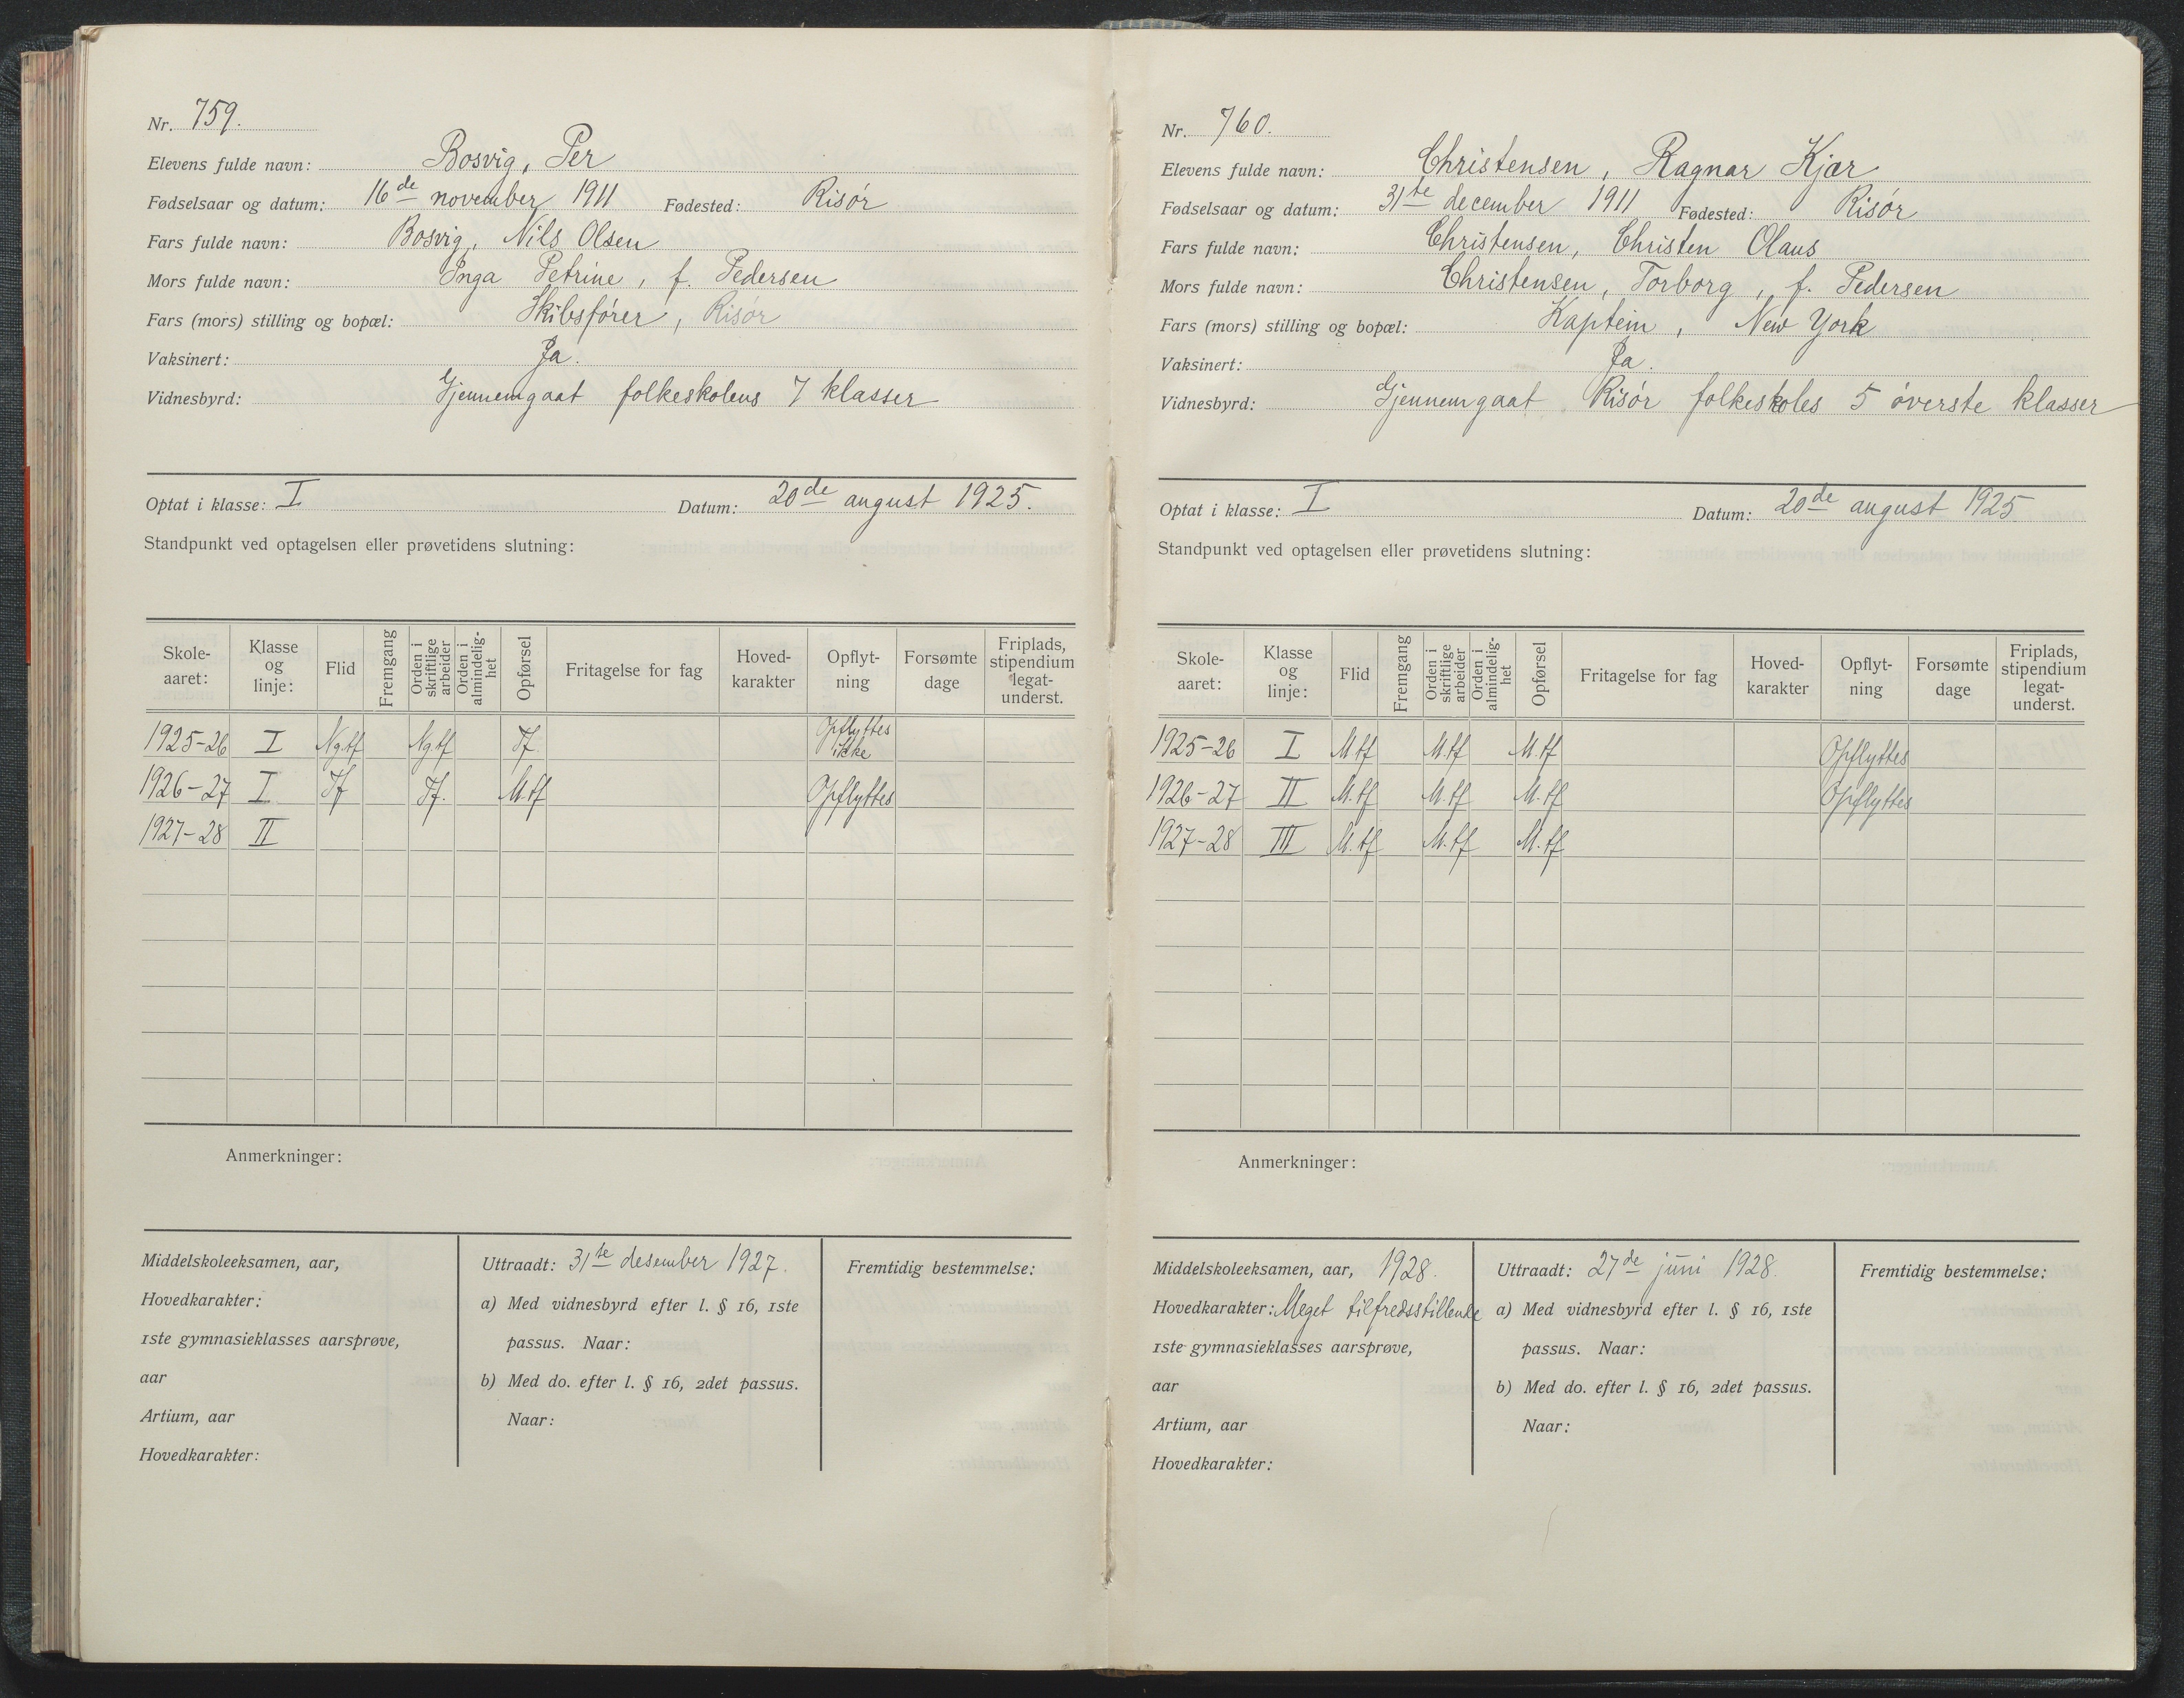 Nr. 759.
Elevens fulde navn: Bosvig, Per
Fødselsaar og datum: 16de november 1911 Fødested: Risör
Fars fulde navn: Bosvig, Nils Olsen
Mors fulde navn: Inga Petrine, f. Pedersen
Fars (mors) stilling og bopæl: Skibsförer, Risör
Vaksinert: Ja.
Vidnesbyrd: Gjennemgaat folkeskolens 7 klasser
Optat i klasse: I Datum: 20de august 1925.
Standpunkt ved optagelsen eller prøvetidens slutning:
Skole-aaret: Klasse og linje: Flid Fremgang Orden i skriftlige arbeider Orden i almindelig-het Opførsel Fritagelse for fag Hoved-karakter Opflyt-ning Forsømte dage Friplads, stipendium legat-underst.
1925-26 I Ng.tf Ng.tf Tf. Opflyttes ikke
1926-27 I Tf Tf. M.tf Opflyttes
1927-28 II
Anmerkninger:
Middelskoleeksamen, aar,
Hovedkarakter:
1ste gymnasieklasses aarsprøve,
aar
Artium, aar
Hovedkarakter:
Uttraadt: 31te desember 1927.
a) Med vidnesbyrd efter l. § 16, 1ste
passus. Naar:
b) Med do. efter l. § 16, 2det passus.
Naar:
Fremtidig bestemmelse:
Nr. 760.
Elevens fulde navn: Christensen, Ragnar Kjær
Fødselsaar og datum: 31te december 1911 Fødested: Risör
Fars fulde navn: Christensen, Christen Olaus
Mors fulde navn: Christensen, Torborg, f. Pedersen
Fars (mors) stilling og bopæl: Kaptein, New York
Vaksinert: Ja.
Vidnesbyrd: Gjennemgaat Risör folkeskoles 5 överste klasser
Optat i klasse: I Datum: 20de august 1925.
Standpunkt ved optagelsen eller prøvetidens slutning:
Skole-aaret: Klasse og linje: Flid Fremgang Orden i skriftlige arbeider Orden i almindelig-het Opførsel Fritagelse for fag Hoved-karakter Opflyt-ning Forsømte dage Friplads, stipendium legat-underst.
1925-26 I M.tf M.tf M.tf Opflyttes
1926-27 II M.tf M.tf M.tf Opflyttes
1927-28 III M.tf M.tf M.tf
Anmerkninger:
Middelskoleeksamen, aar, 1928.
Hovedkarakter: Meget tilfredsstillende
1ste gymnasieklasses aarsprøve,
aar
Artium, aar
Hovedkarakter:
Uttraadt: 27de juni 1928.
a) Med vidnesbyrd efter l. § 16, 1ste
passus. Naar:
b) Med do. efter l. § 16, 2det passus.
Naar:
Fremtidig bestemmelse: